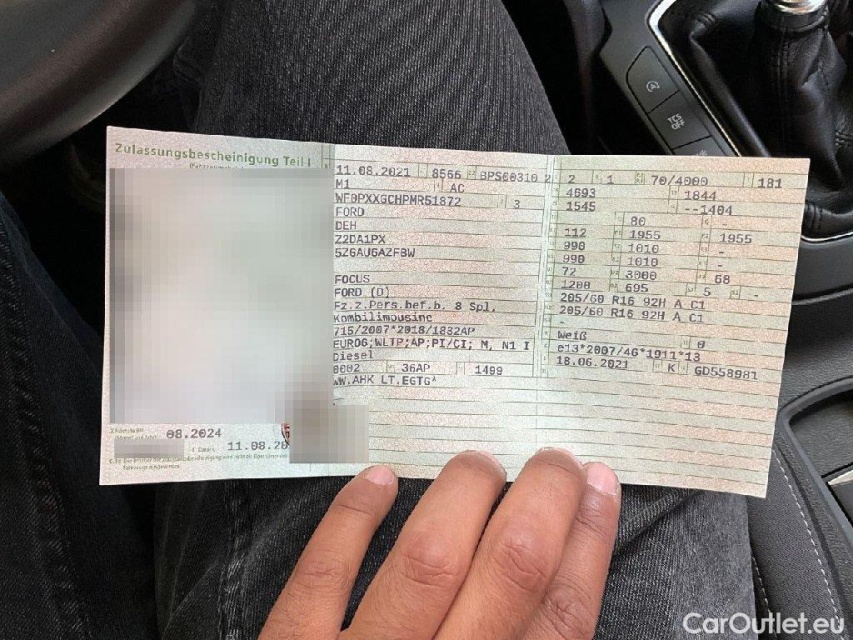 Zulassungsbescheinigung Teil I
11.08.2021 8566 BPS00310 2
M1 AC
WF0PXXGCHPMR51872 3
FORD
DEH
Z2DA1PX
5Z6AU6AZFBW
FOCUS
FORD (D)
Fz.z.Pers.bef.b. 8 Spl.
Kombilimousine
715/2007*2018/1832AP
EURO6;WLTP;AP;PI/CI; M, N1 I
Diesel
0002 36AP 1499
WW.AHK LT.EGTG*
2 1 70/4000 181
4693 1844
1545 --1484
80 -
112 1955 1955
990 1010 -
990 1010 -
72 3000 68
1200 695 5 -
205/60 R16 92H A C1
205/60 R16 92H A C1
-
Weiß 0
e13*2007/46*1911*13
18.06.2021 K GD558981
08.2024
11.08.20
TCS
OFF
CarOutlet.eu